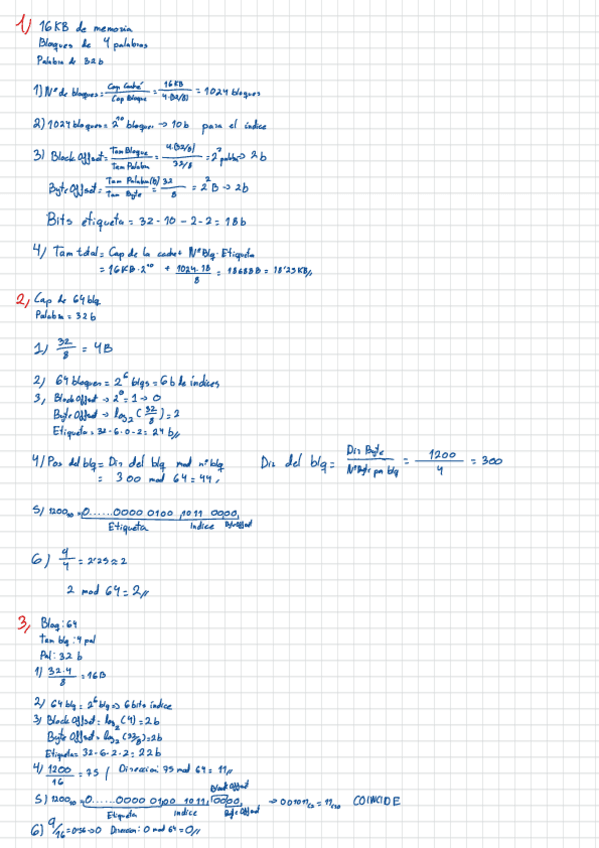 1) 16KB de memoria
Bloques de 4 palabras
Palabra de 32b
1) Nº de bloques = Cap Caché / Cap Bloque = 16KB / 4·(32/8) = 1024 bloques
2) 1024 bloques = 2^10 bloques → 10b para el índice
3) Block Offset = Tam Bloque / Tam Palabra = 4·(32/8) / 32/8 = 2^2 palabras → 2b
Byte Offset = Tam Palabra(B) / Tam Byte = 32 / 8 = 2^2 B → 2b
Bits etiqueta = 32 - 10 - 2 - 2 = 18b
4) Tam total = Cap de la caché + NºBlq · Etiqueta
= 16KB · 2^10 + 1024·18 / 8 = 18688B = 18'25KB//
2) Cap de 64 blq
Palabra = 32b
1) 32 / 8 = 4B
2) 64 bloques = 2^6 blqs = 6b de índices
3) Block Offset → 2^0 = 1 → 0
Byte Offset → log2 (32/8) = 2
Etiqueta = 32 - 6 - 0 - 2 = 24b//
4) Pos del blq = Dir del blq mod nº blq Dir del blq = Dir Byte / NºByte por blq = 1200 / 4 = 300
= 300 mod 64 = 44,
5) 1200 = 0......0000 0100 1011 0000,
Etiqueta Índice Byte Offset
6) 9 / 4 = 2'25 ≈ 2
2 mod 64 = 2//
3) Bloq: 64
Tam blq: 4 pal
Pal: 32b
1) 32·4 / 8 = 16B
2) 64 blq = 2^6 blq → 6 bits índice
3) Block Offset = log2 (4) = 2b
Byte Offset = log2 (32/8) = 2b
Etiqueta = 32 - 6 - 2 - 2 = 22b
4) 1200 / 16 = 75 / Direccion: 75 mod 64 = 11//
Block Offset
5) 1200 = 0......0000 0100 1011, 0000, → 001011 = 11 COINCIDE
Etiqueta Índice Byte Offset
6) 9/16 = 0'56 → 0 Direccion: 0 mod 64 = 0//